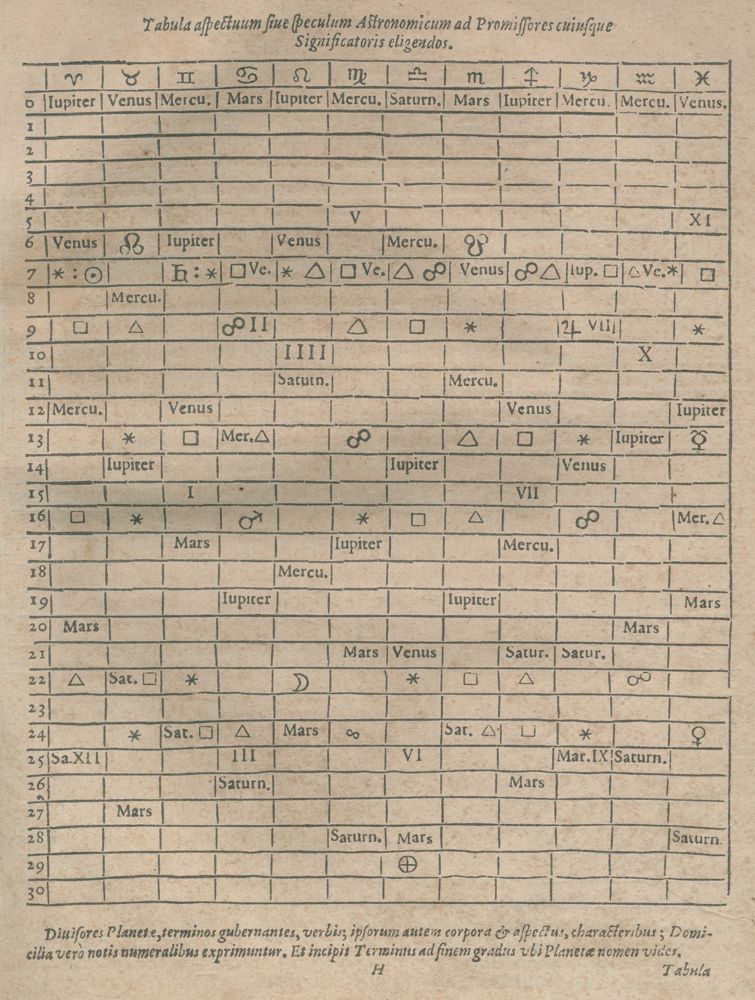 Tabula aſpectuum ſiue ſpeculum Aſtronomicum ad Promiſſores cuiuſque
Significatoris eligendos.
♈ ♉ ♊ ♋ ♌ ♍ ♎ ♏ ♐ ♑ ♒ ♓
0 Iupiter Venus Mercu. Mars Iupiter Mercu. Saturn. Mars Iupiter Mercu. Mercu. Venus.
1
2
3
4
5 V XI
6 Venus ☊ Iupiter Venus Mercu. ☋
7 ⚹ : ☉ ♄ : ⚹ □ Ve. ⚹ △ □ Ve. △ ☍ Venus ☍ △ Iup. □ △ Ve. ⚹ □
8 Mercu.
9 □ △ ☍ II △ □ ⚹ ♃ VIII ⚹
10 IIII X
11 Saturn. Mercu.
12 Mercu. Venus Venus Iupiter
13 ⚹ □ Mer. △ ☍ △ □ ⚹ Iupiter ☿
14 Iupiter Iupiter Venus
15 I VII
16 □ ⚹ ♂ ⚹ □ △ ☍ Mer. △
17 Mars Iupiter Mercu.
18 Mercu.
19 Iupiter Iupiter Mars
20 Mars Mars
21 Mars Venus Satur. Satur.
22 △ Sat. □ ⚹ ☽ ⚹ □ △ ☍
23
24 ⚹ Sat. □ △ Mars ☍ Sat. △ □ ⚹ ♀
25 Sa. XII III VI Mar. IX Saturn.
26 Saturn. Mars
27 Mars
28 Saturn. Mars Saturn.
29 ⊕
30
Diuiſores Planetæ, terminos gubernantes, verbis; ipſorum autem corpora & aſpectus, characteribus; Domi-
cilia verò notis numeralibus exprimuntur. Et incipit Terminus ad finem gradus vbi Planetæ nomen vides.
H Tabula